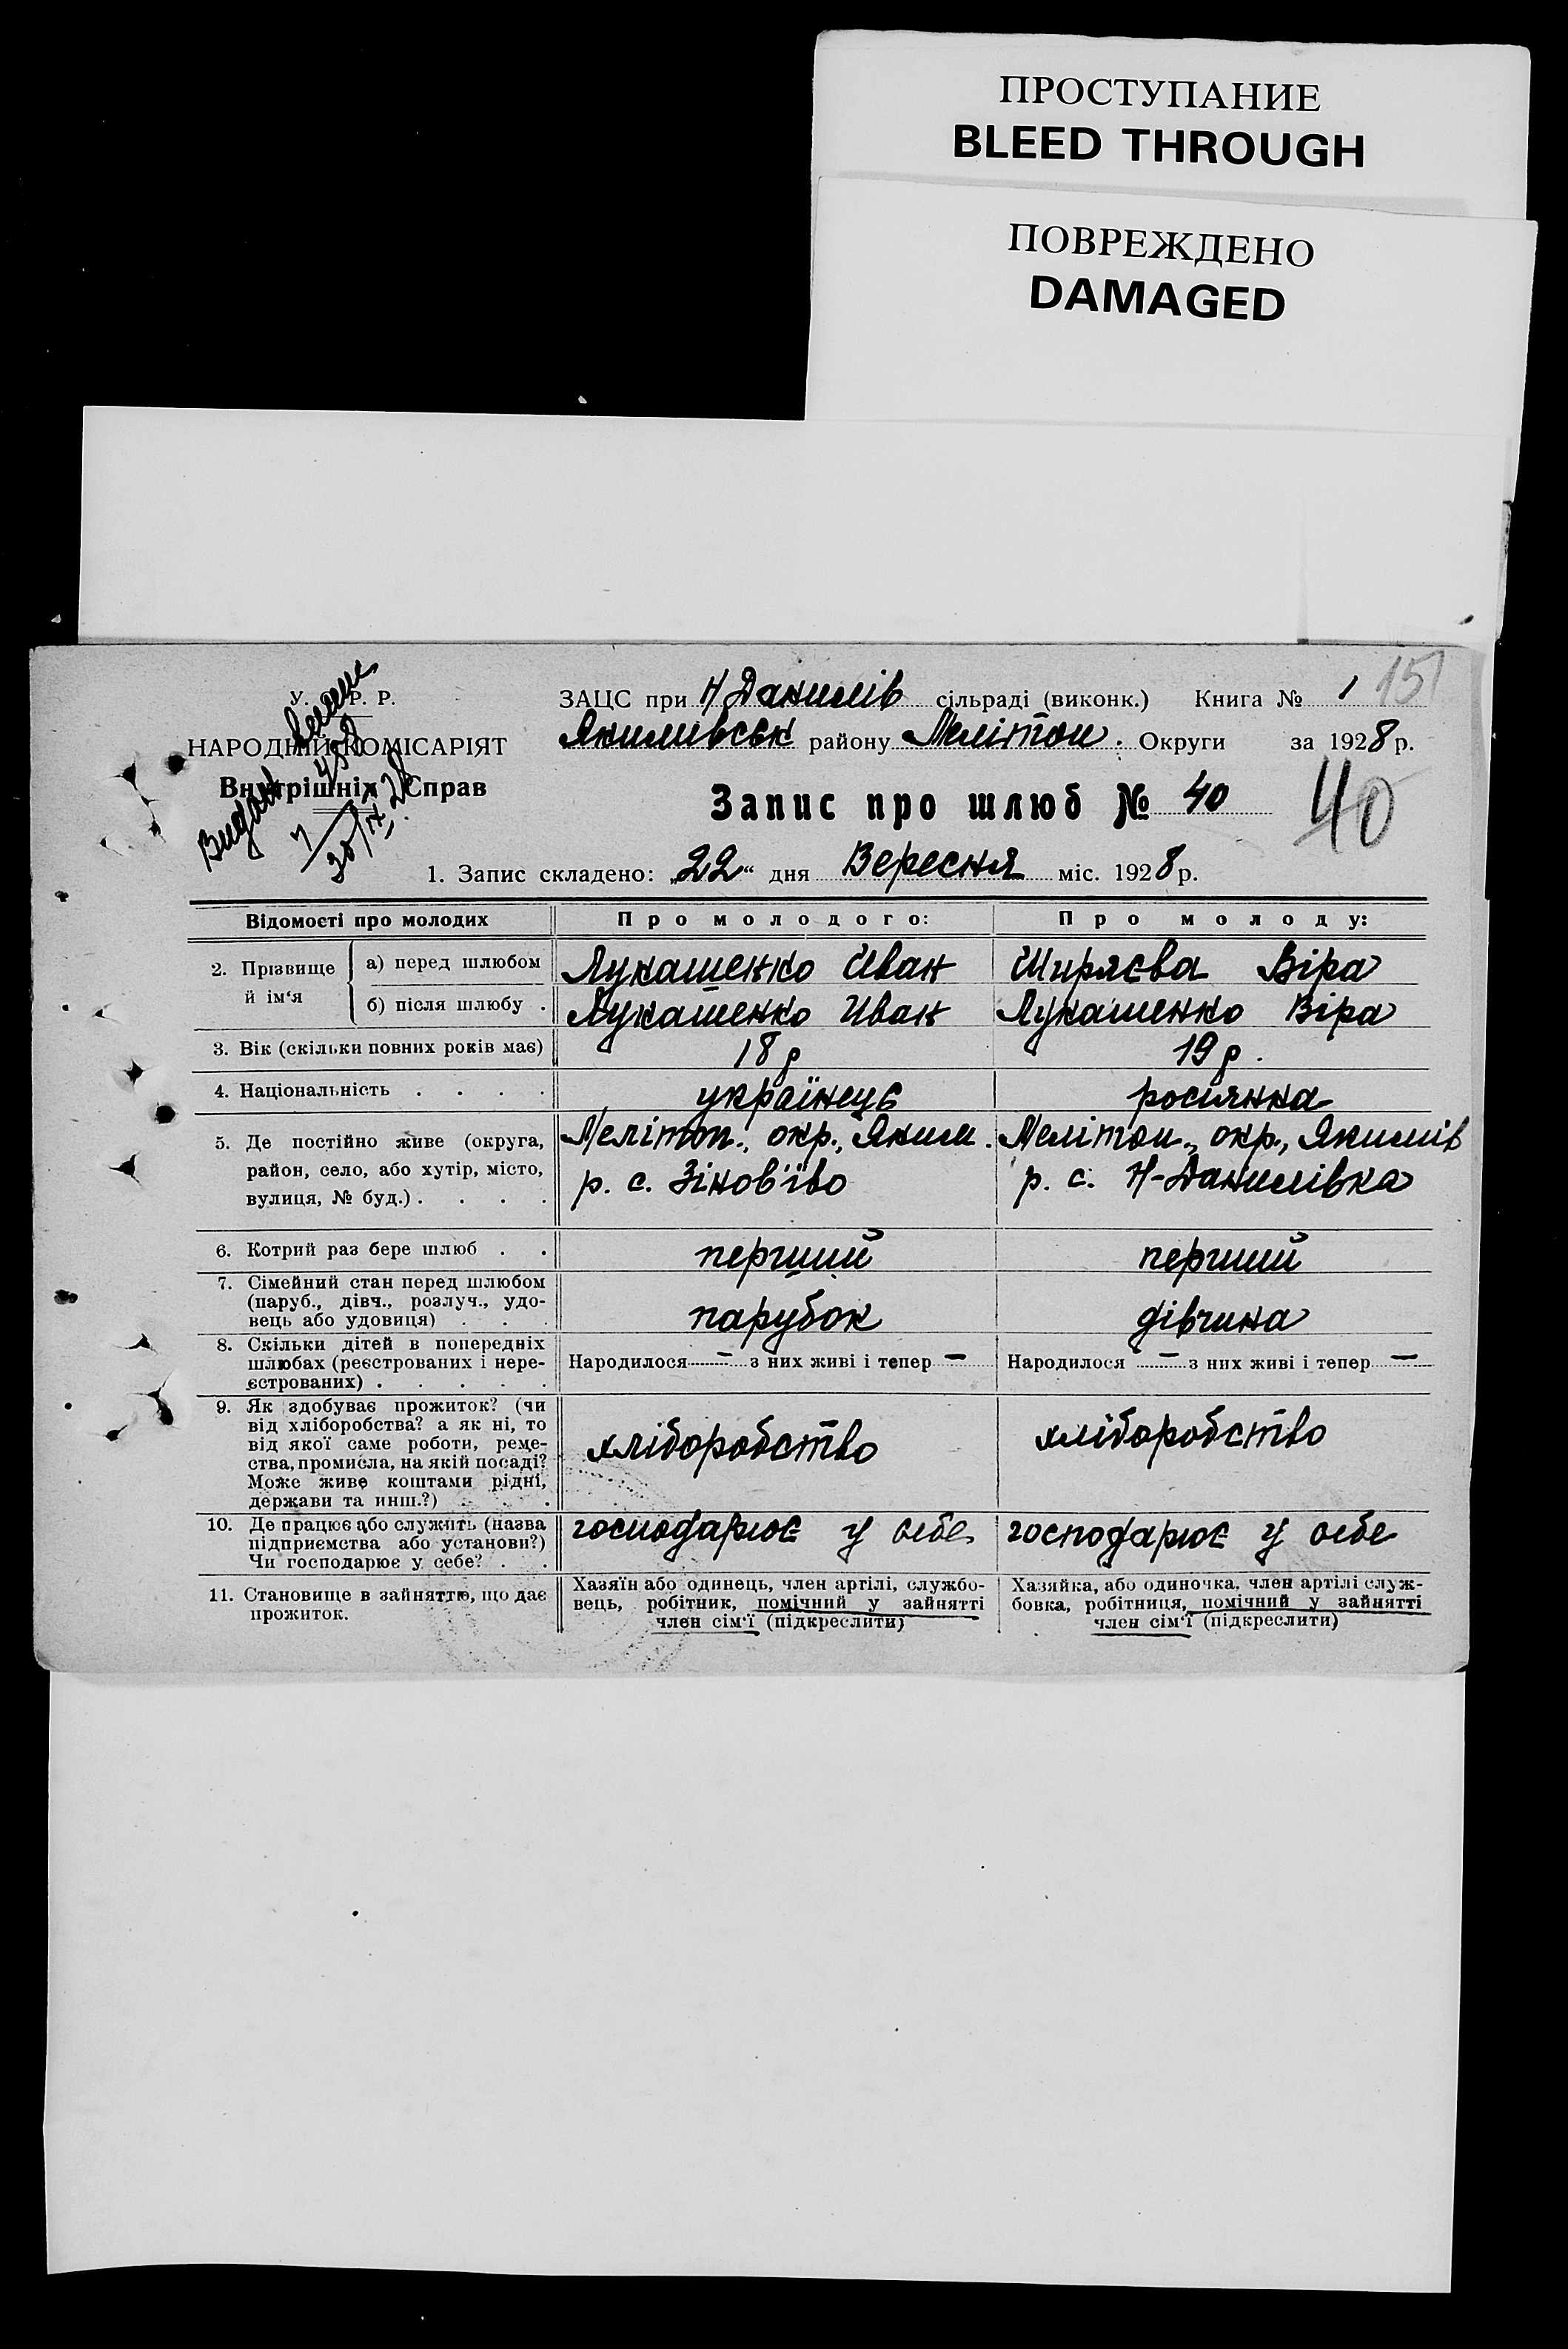 ПРОСТУПАНИЕ
BLEED THROUGH
ПОВРЕЖДЕНО
DAMAGED
15
У. Р. Р.
НАРОДНІЙ КОМІСАРІЯТ
Внутрішніх Справ
Видан
ЗАЦС при Н Данилів сільраді (виконк.) Книга № 1
Якимивськ району Мелітоп. Округи за 1928 р.
Запис про шлюб № 40
40
1. Запис складено: „22“ дня Вересня міс. 1928 р.
Відомості про молодих Про молодого: Про молоду:
2. Прізвище й ім‘я
а) перед шлюбом Лукашенко Иван Ширяєва Віра
б) після шлюбу . Лукашенко Иван Лукашенко Віра
3. Вік (скільки повних років має) 18 р 19 р.
4. Національність . . . . українець росіянка
5. Де постійно живе (округа,
район, село, або хутір, місто,
вулиця, № буд.) . . . .
Меліто­п., окр., Яким.
р. с. Зінов'їво
Мелітоп., окр., Якимів
р. с. Н-Данилівка
6. Котрий раз бере шлюб . . перший перший
7. Сімейний стан перед шлюбом
(паруб., дівч., розлуч., удо-
вець або удовиця) . . .
парубок дівчина
8. Скільки дітей в попередніх
шлюбах (реєстрованих і нере-
єстрованих) . . . . .
Народилося — з них живі і тепер — Народилося — з них живі і тепер —
9. Як здобуває прожиток? (чи
від хліборобства? а як ні, то
від якої саме роботи, реме-
ства, промисла, на якій посаді?
Може живе коштами рідні,
держави та инш.?) . . .
хліборобство хліборобство
10. Де працює або служить (назва
підприємства або установи?)
Чи господарює у себе? . .
господарює у себе господарює у себе
11. Становище в зайняттю, що дає
прожиток.
Хазяїн або одинець, член артілі, службо-
вець, робітник, помічний у зайнятті
член сім‘ї (підкреслити)
Хазяйка, або одиночка, член артілі служ-
бовка, робітниця, помічний у зайнятті
член сім‘ї (підкреслити)